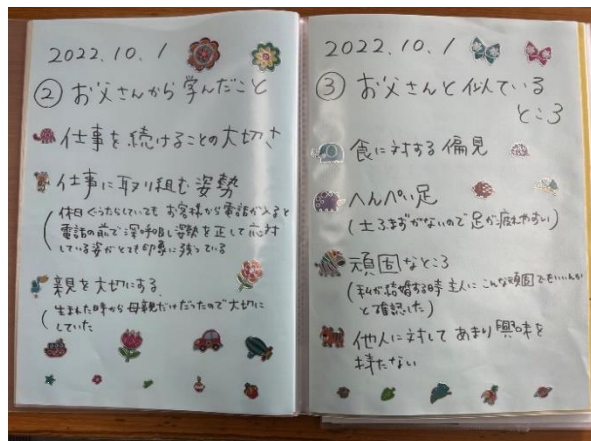 2022.10.1
② お父さんから学んだこと
仕事を続けることの大切さ
仕事に取り組む姿勢
(休日ぐうたらしていても お客様から電話が入ると
電話の前で深呼吸し姿勢を正して応対
している姿がとても印象に残っている
親を大切にする
(生まれた時から母親だけだったので大切に
していた
2022.10.1
③ お父さんと似ている
ところ
食に対する偏見
へんぺい足
(土ふまずがないので足が疲れやすい)
頑固なところ
(私が結婚する時 主人に、こんな頑固でもいいんか
と確認した)
他人に対して あまり興味を
持たない